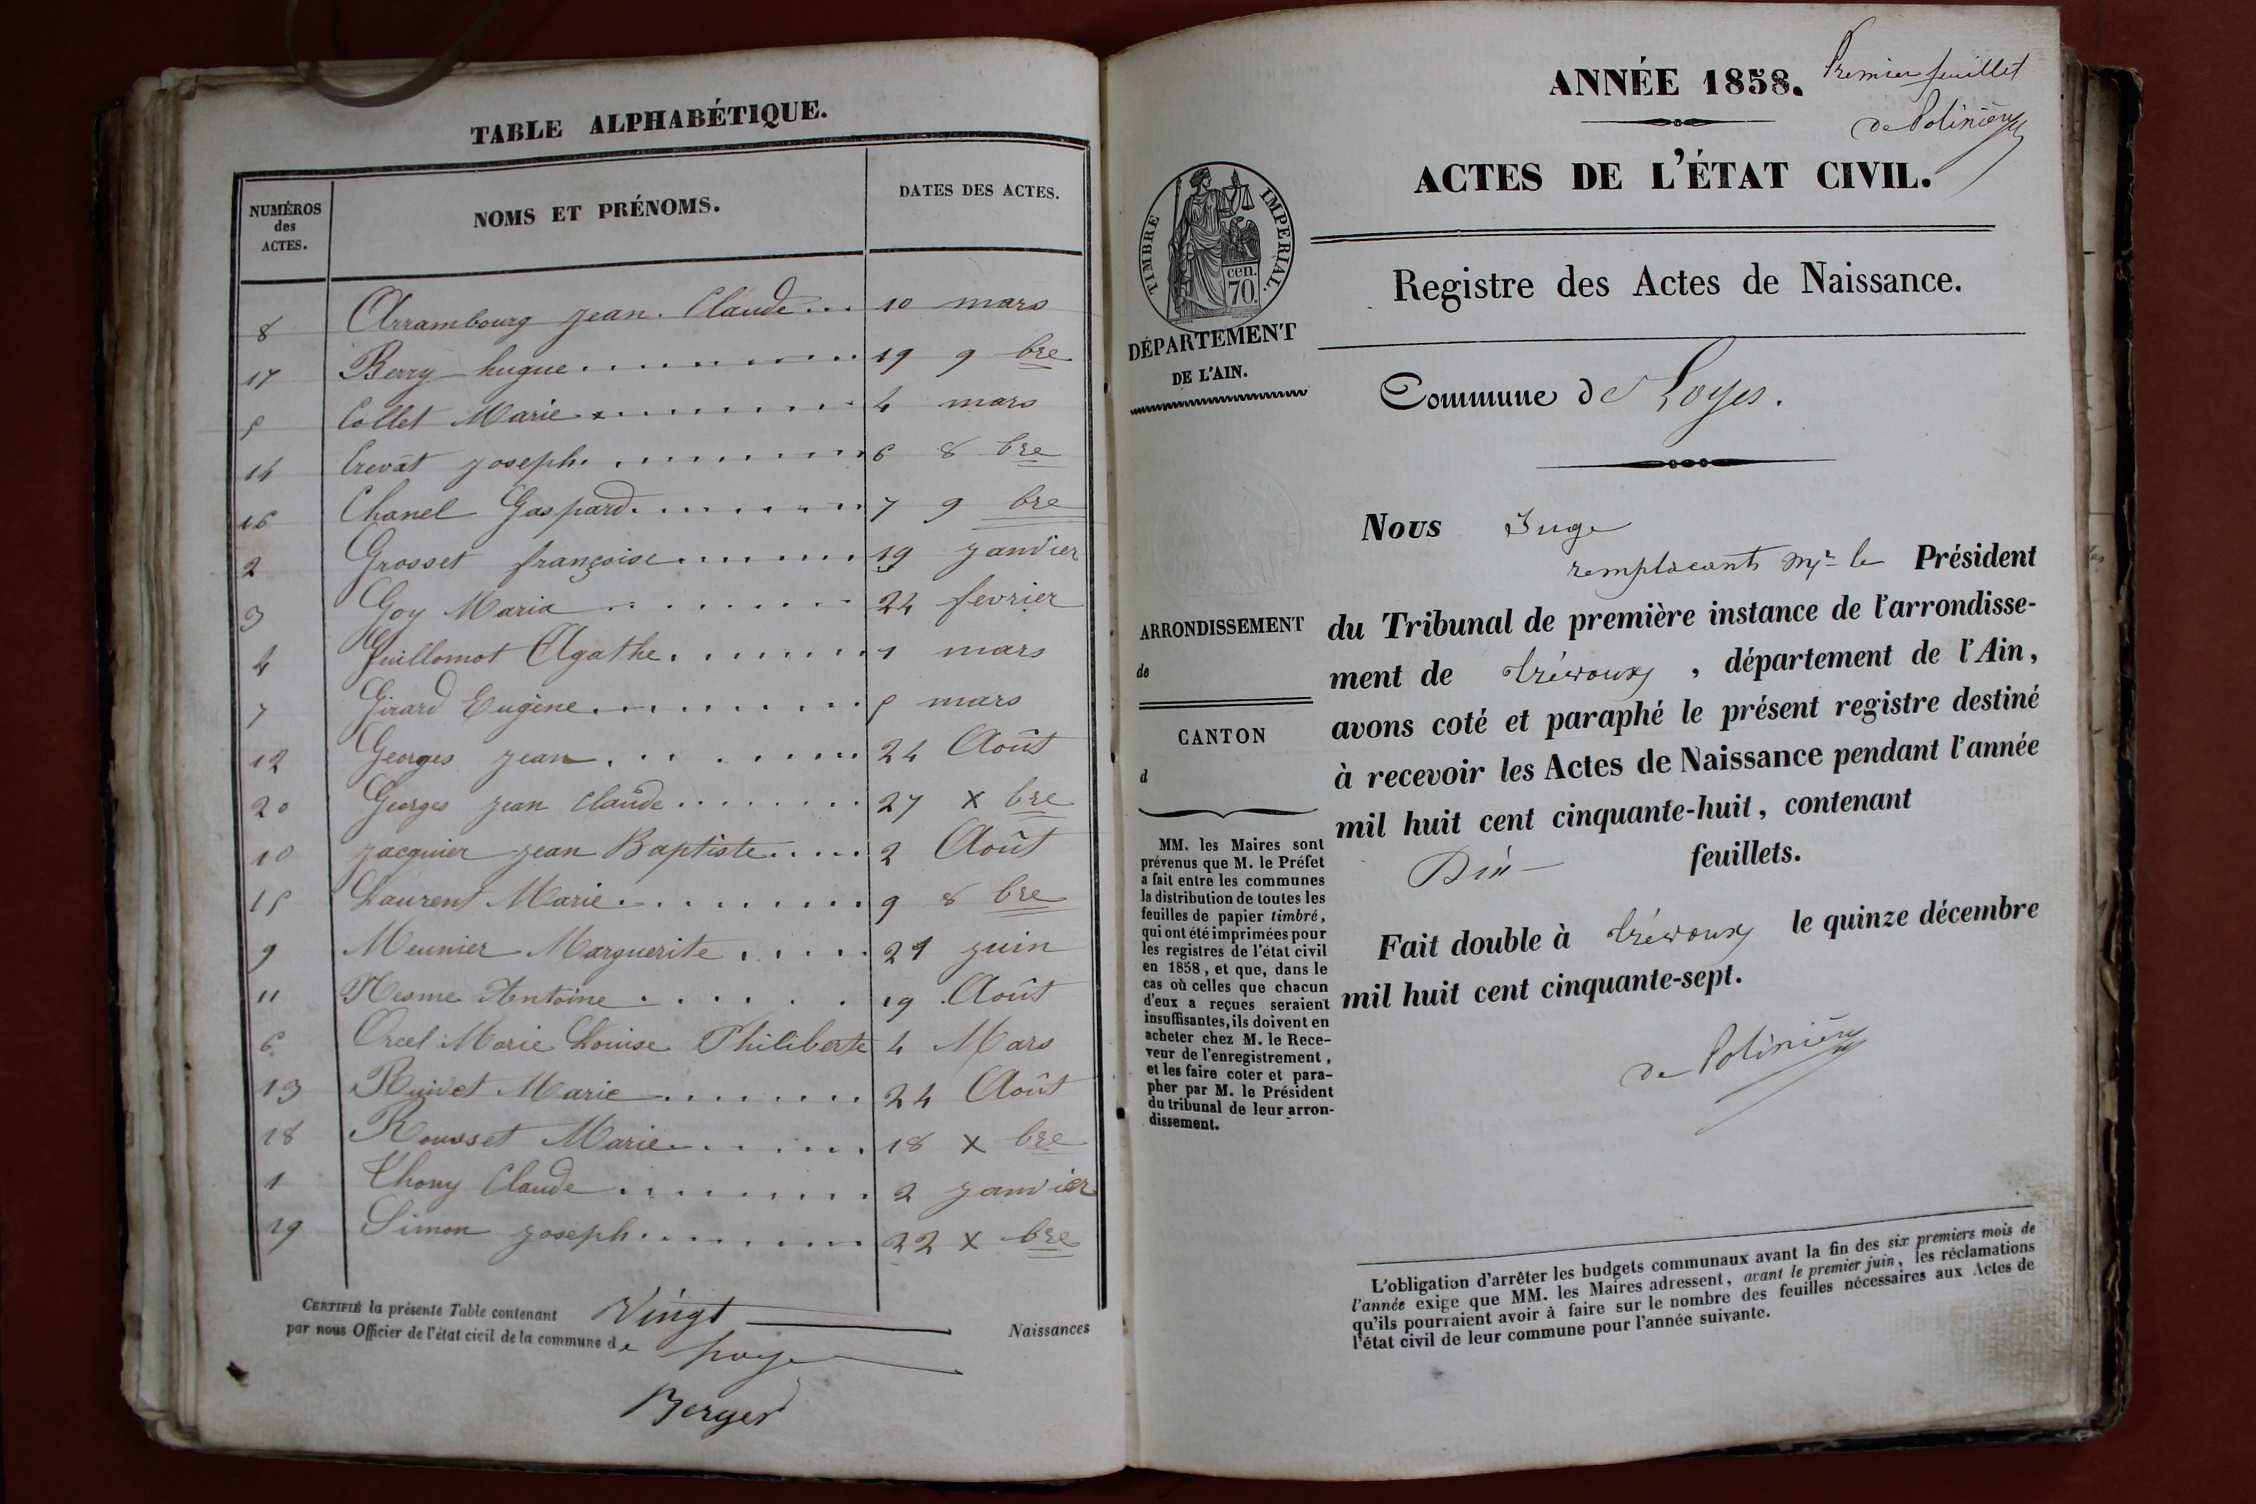 TABLE ALPHABÉTIQUE.
NUMÉROS des ACTES. NOMS ET PRÉNOMS. DATES DES ACTES.
8 Arrambourg jean Claude... 10 mars
17 Berry hugue 19 9 bre
5 Collet Marie 4 mars
14 Crevat joseph 6 8 bre
16 Chanel Gaspard 7 9 bre
2 Grosset françoise 19 janvier
3 Goy Maria 24 fevrier
4 Guillomot Agathe 1 mars
7 Girard Eugène 5 mars
12 Georges jean 24 Août
20 Georges jean Claude 27 X bre
10 jacquier jean Baptiste 2 Août
15 Laurent Marie 9 8 bre
9 Meunier Marguerite 21 juin
11 Nesme Antoine 19 Août
6 Orcel Marie Louise Philiberte 4 Mars
13 Ruivet Marie 24 Août
18 Rousset Marie 18 X bre
1 Thony Claude 2 janvier
19 Simon joseph 22 X bre
CERTIFIÉ la présente Table contenant Vingt Naissances
par nous Officier de l'état civil de la commune de Loyes
Berger
Premier feuillet
de Polinière
ANNÉE 1858.
ACTES DE L'ÉTAT CIVIL.
TIMBRE IMPÉRIAL.
cen.
70.
Registre des Actes de Naissance.
DÉPARTEMENT
DE L'AIN.
Commune de Loyes.
ARRONDISSEMENT
de
CANTON
d
MM. les Maires sont
prévenus que M. le Préfet
a fait entre les communes
la distribution de toutes les
feuilles de papier timbré,
qui ont été imprimées pour
les registres de l'état civil
en 1858, et que, dans le
cas où celles que chacun
d'eux a reçues seraient
insuffisantes, ils doivent en
acheter chez M. le Rece-
veur de l'enregistrement,
et les faire coter et para-
pher par M. le Président
du tribunal de leur arron-
dissement.
Nous Juge
remplacant Mr le Président
du Tribunal de première instance de l'arrondisse-
ment de Trévoux, département de l'Ain,
avons coté et paraphé le présent registre destiné
à recevoir les Actes de Naissance pendant l'année
mil huit cent cinquante-huit, contenant
Dix feuillets.
Fait double à Trévoux le quinze décembre
mil huit cent cinquante-sept.
de Polinière
L'obligation d'arrêter les budgets communaux avant la fin des six premiers mois de
l'année exige que MM. les Maires adressent, avant le premier juin, les réclamations
qu'ils pourraient avoir à faire sur le nombre des feuilles nécessaires aux Actes de
l'état civil de leur commune pour l'année suivante.